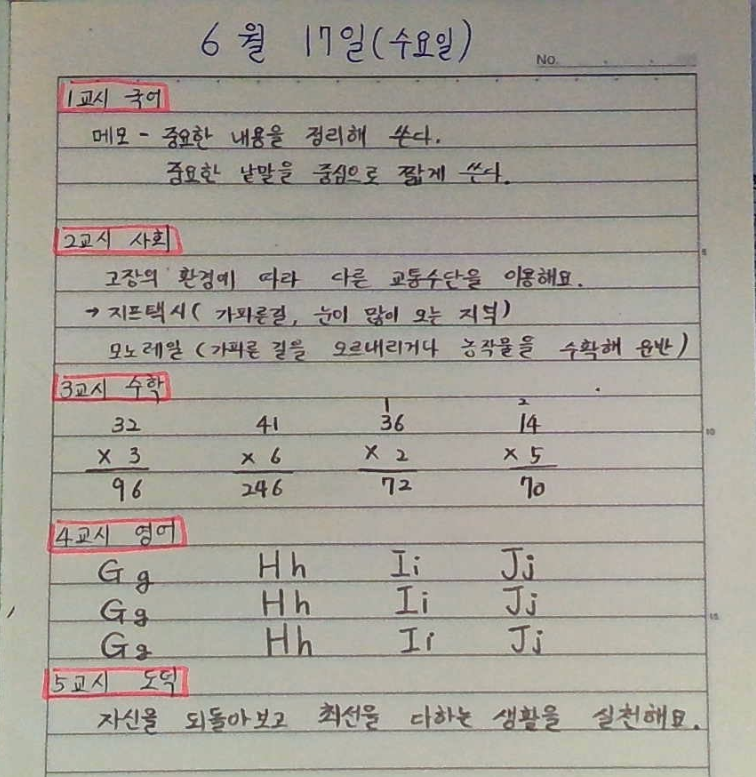 6월 17일(수요일)
No.
1교시 국어
메모 - 중요한 내용을 정리해 쓴다.
중요한 낱말을 중심으로 짧게 쓴다.
2교시 사회
5
고장의 환경에 따라 다른 교통수단을 이용해요.
→ 지프택시( 가파른길, 눈이 많이 오는 지역)
모노레일 (가파른 길을 오르내리거나 농작물을 수확해 운반)
3교시 수학
1 2
32 41 36 14
10
x 3 x 6 x 2 x 5
96 246 72 70
4교시 영어
G g H h I i J j
G g H h I i J j
15
G g H h I i J j
5교시 도덕
자신을 되돌아보고 최선을 다하는 생활을 실천해요.